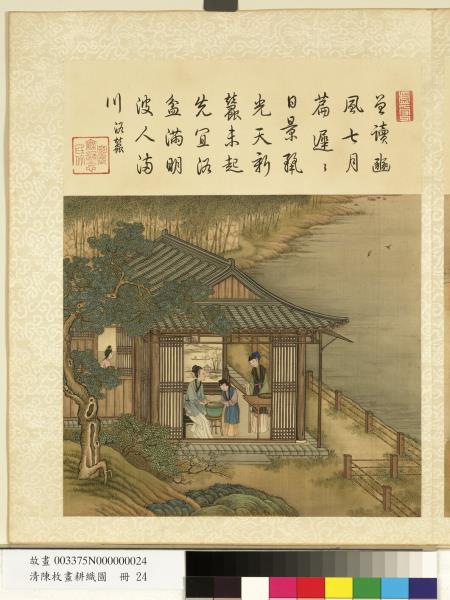 曾讀豳
風七月
篇遲〻
日景麗
光天新
蠶未起
先宜浴
盆滿明
波人滿
川 浴蠶
故畫 003375N000000024
清陳枚畫耕織圖 冊 24